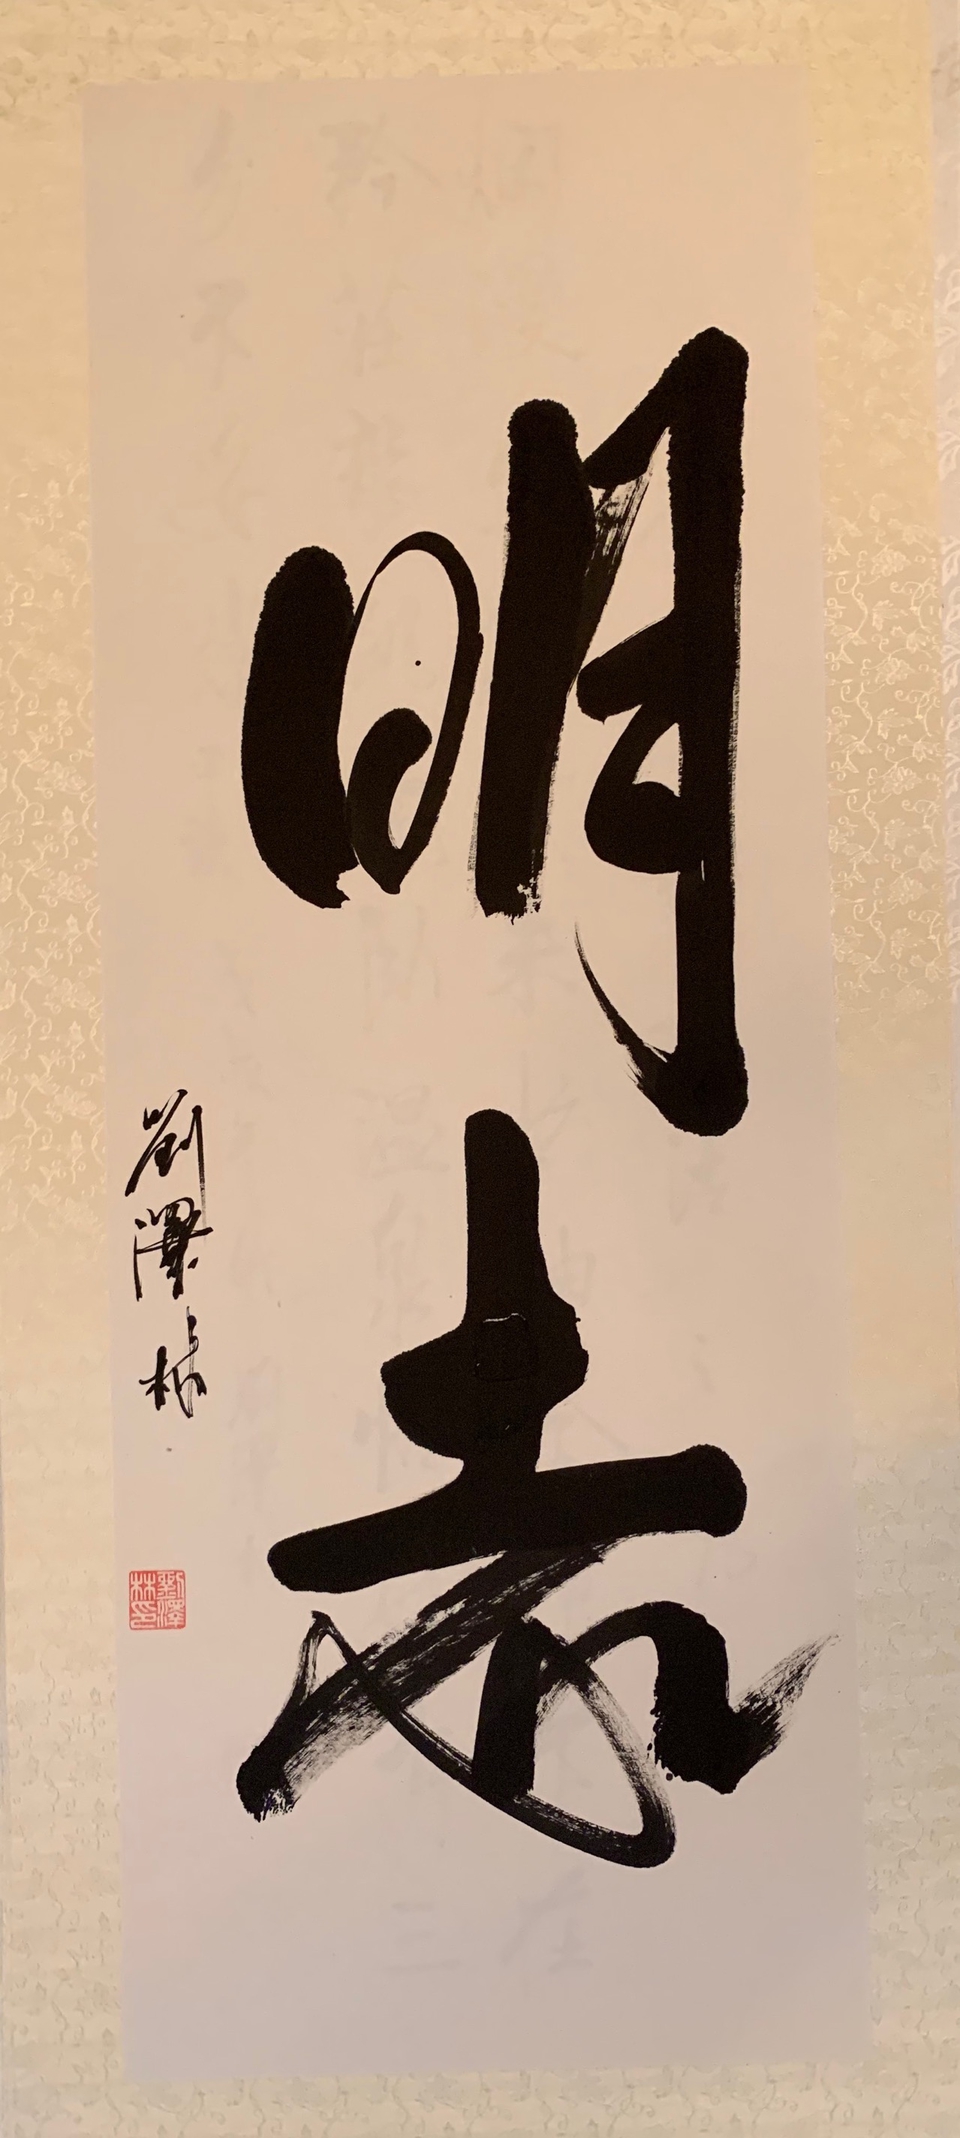 明志
劉澤林
劉澤林印